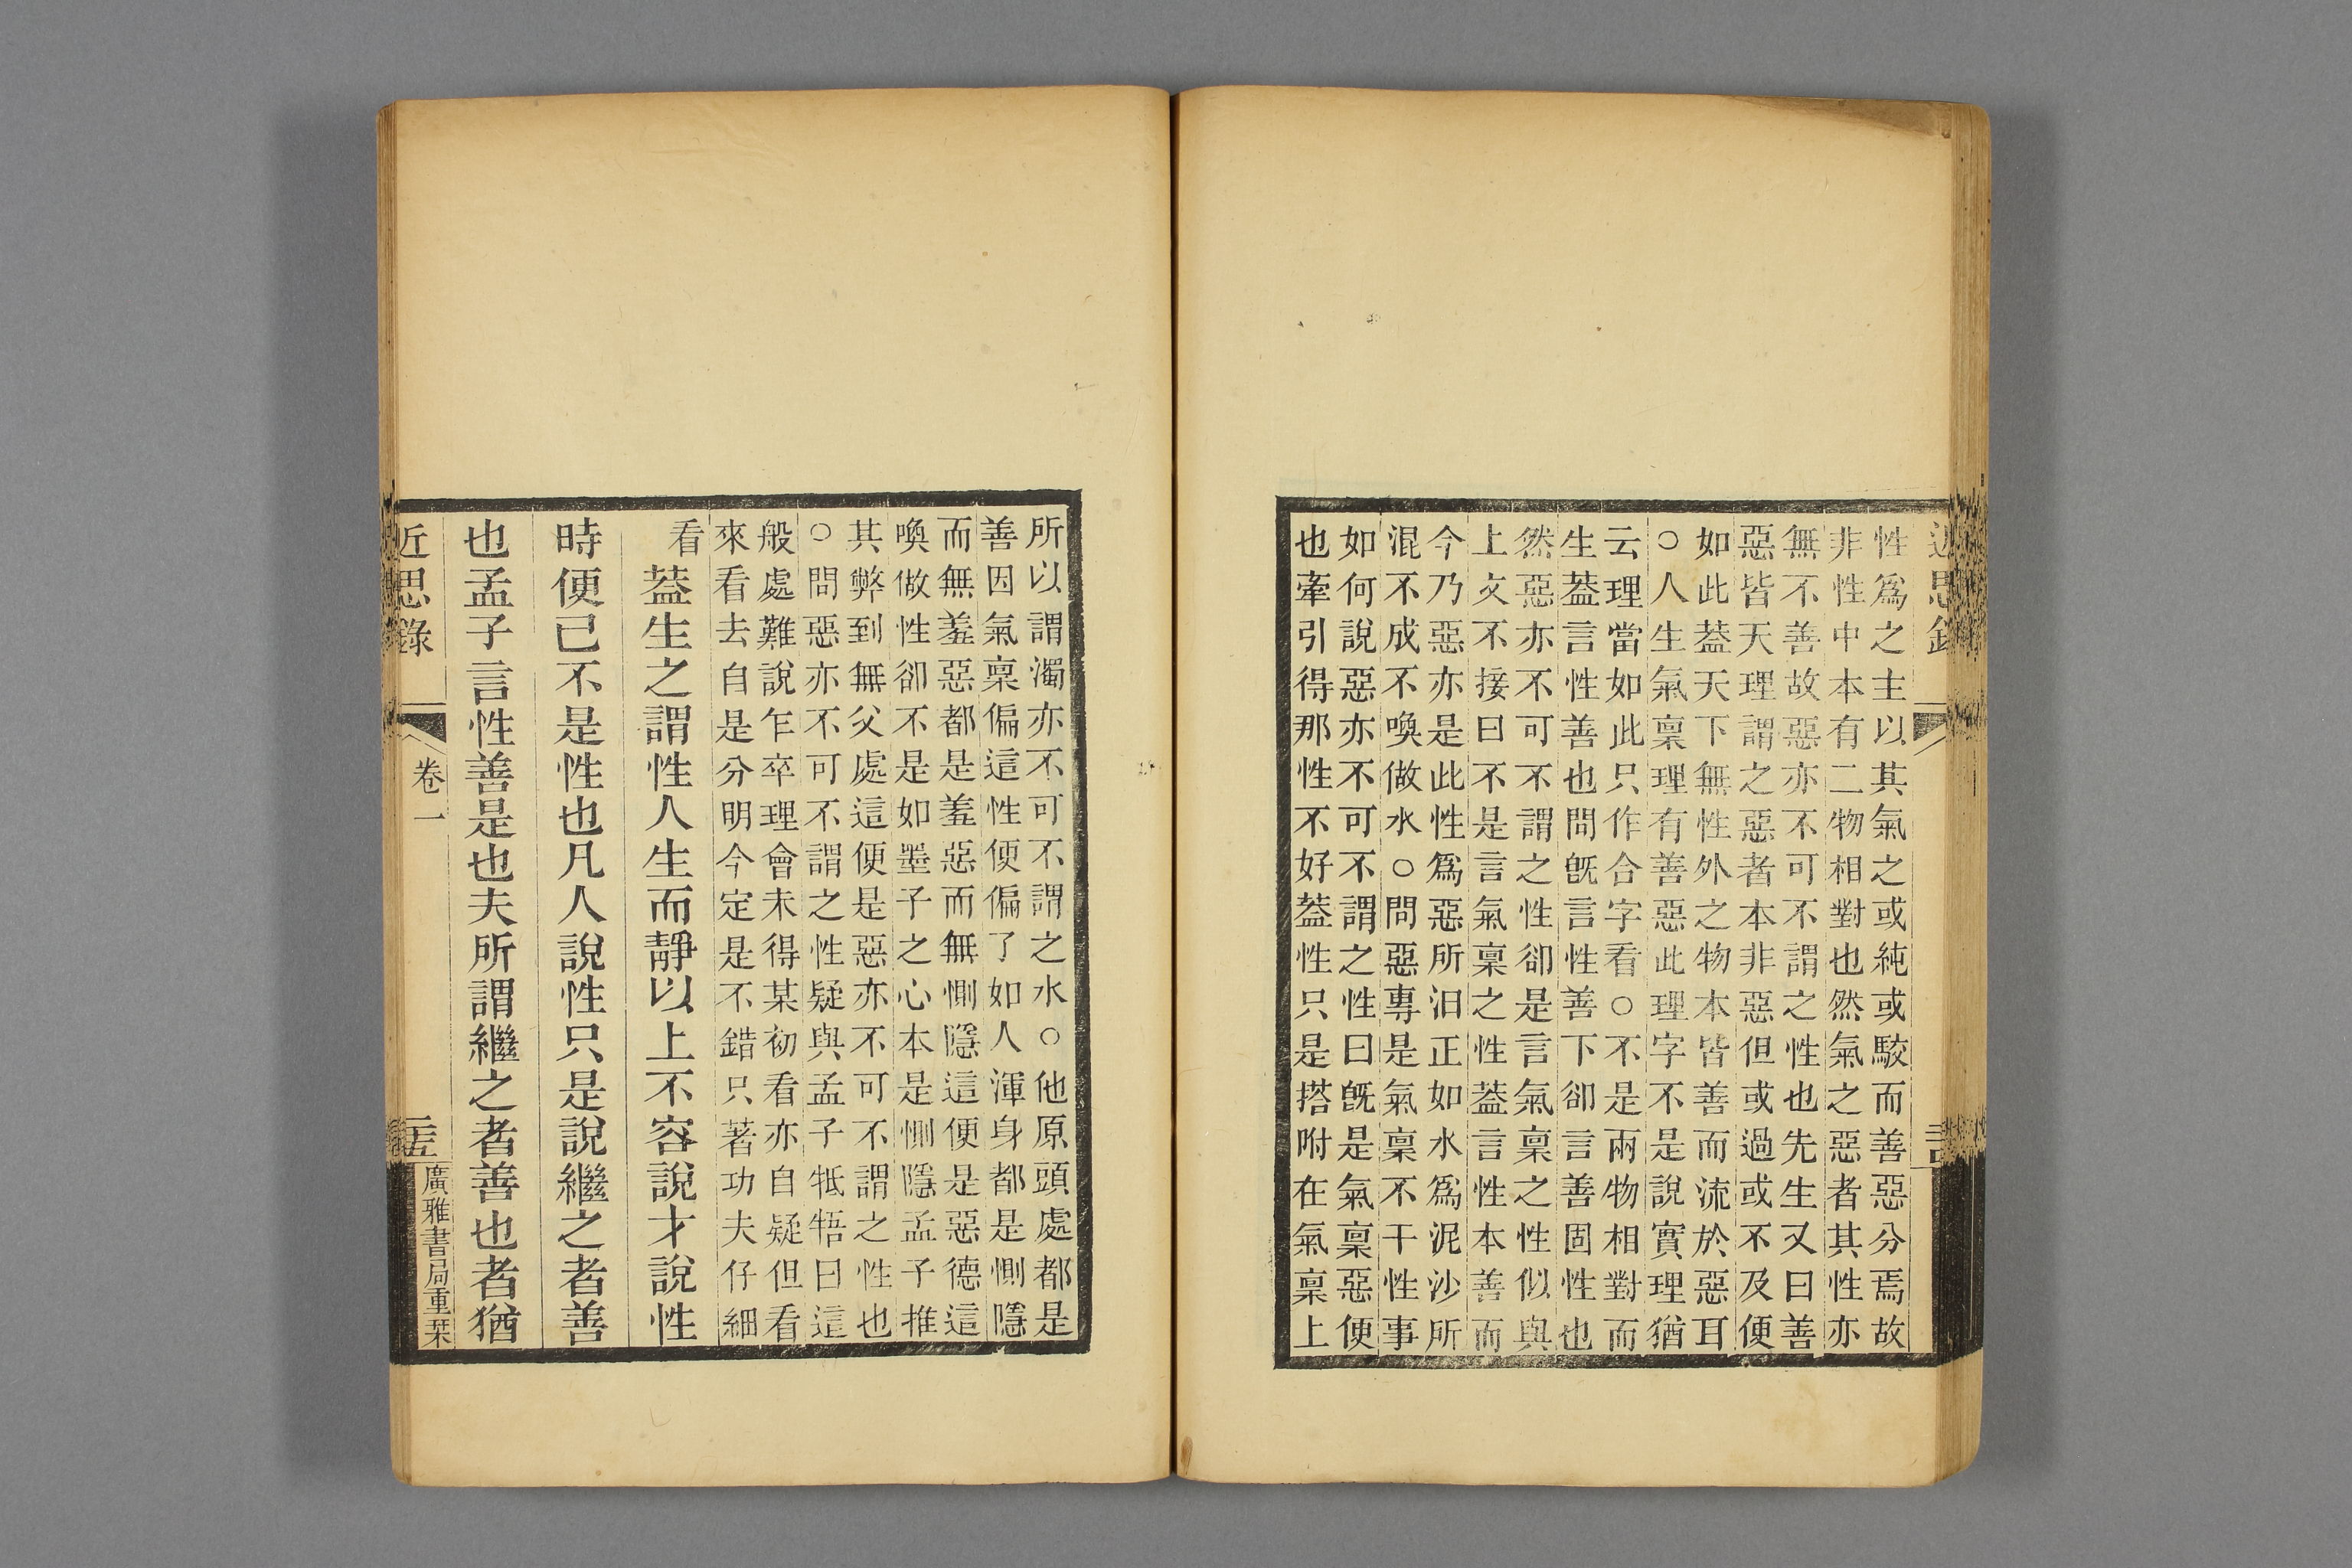 性爲之主以其氣之或純或駁而善惡分焉故
非性中本有二物相對也然氣之惡者其性亦
無不善故惡亦不可不謂之性也先生又曰善
惡皆天理謂之惡者本非惡但或過或不及便
如此葢天下無性外之物本皆善而流於惡耳
○人生氣稟理有善惡此理字不是說實理猶
云理當如此只作合字看○不是兩物相對而
生葢言性善也問旣言性善下卻言善固性也
然惡亦不可不謂之性卻是言氣稟之性似與
上文不接曰不是言氣稟之性葢言性本善而
今乃惡亦是此性爲惡所汩正如水爲泥沙所
混不成不喚做水○問惡專是氣稟不干性事
如何說惡亦不可不謂之性曰旣是氣稟惡便
也牽引得那性不好葢性只是搭附在氣稟上
所以謂濁亦不可不謂之水○他原頭處都是
善因氣稟偏這性便偏了如人渾身都是惻隱
而無羞惡都是羞惡而無惻隱這便是惡德這
喚做性卻不是如墨子之心本是惻隱孟子推
其弊到無父處這便是惡亦不可不謂之性也
○問惡亦不可不謂之性疑與孟子牴牾曰這
般處難說乍卒理會未得某初看亦自疑但看
來看去自是分明今定是不錯只著功夫仔細
看
葢生之謂性人生而靜以上不容說才說性
時便已不是性也凡人說性只是說繼之者善
也孟子言性善是也夫所謂繼之者善也者猶
近思錄
卷一
廣雅書局重栞